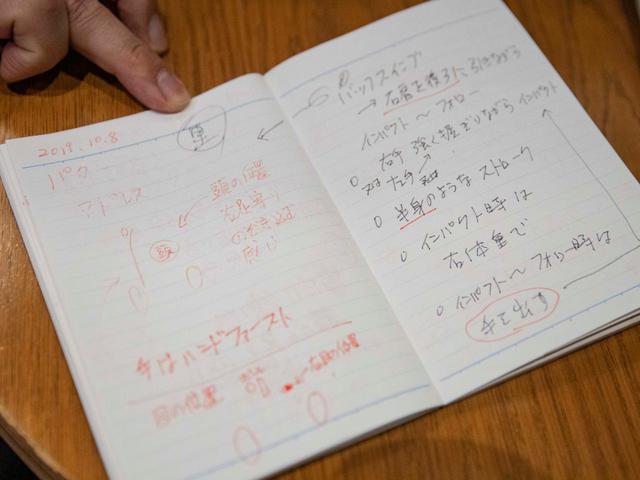 2019.10.8
パタ
アドレス
頭の位置
左足寄り
の
感じ
頭
手はハンドファースト
目の位置
右目の位置
バックスイング
→ 右肩を後ろに引きながら
インパクト〜フォロー
右手 強く握りながら インパクト
半身のようなストローク
インパクト時は
右体重で
インパクト〜フォロー時は
手を出す